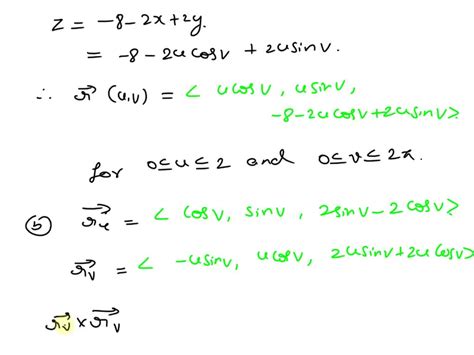 z = -8-2x+2y.
= -8-2ucosv + 2usinv.
∴ r⃗ (u,v) = < ucosv, usinv,
-8-2ucosv+2usinv>
for 0≤u≤2 and 0≤v≤2π.
(b) r⃗u = < cosv, sinv, 2sinv-2cosv>
r⃗v = < -usinv, ucosv, 2usinv+2ucosv>
r⃗v × r⃗v